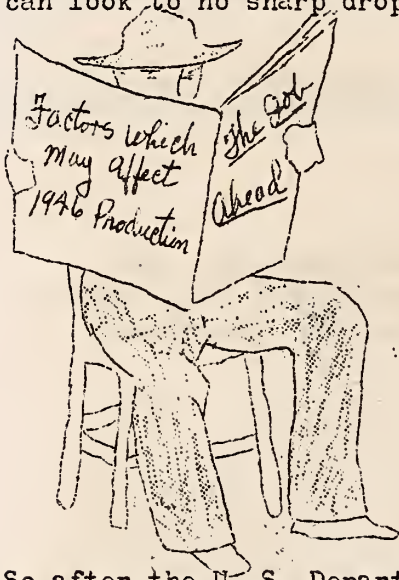 can look to no sharp drop
Factors which
may affect
1946 Production
The Job
Ahead
So after the U. S. Depart